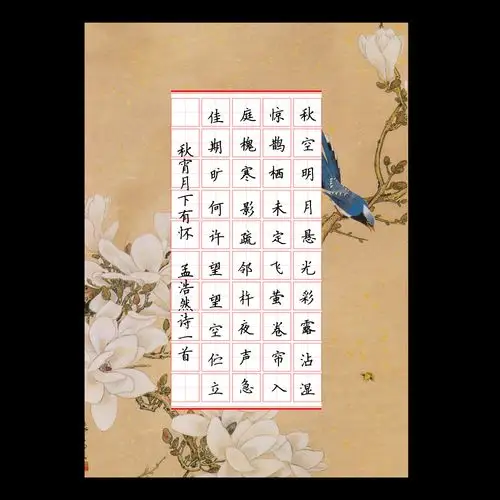 秋空明月悬光彩露沾湿
惊鹊栖未定飞萤卷帘入
庭槐寒影疏邻杵夜声急
佳期旷何许望望空伫立
秋宵月下有怀 孟浩然诗一首